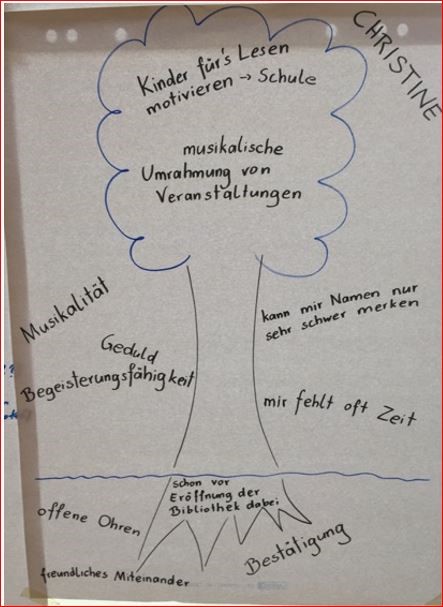 CHRISTINE
Kinder für's Lesen
motivieren → Schule
musikalische
Umrahmung von
Veranstaltungen
Musikalität
Geduld
Begeisterungsfähigkeit
kann mir Namen nur
sehr schwer merken
mir fehlt oft Zeit
schon vor
Eröffnung der
Bibliothek dabei
offene Ohren
freundliches Miteinander
Bestätigung